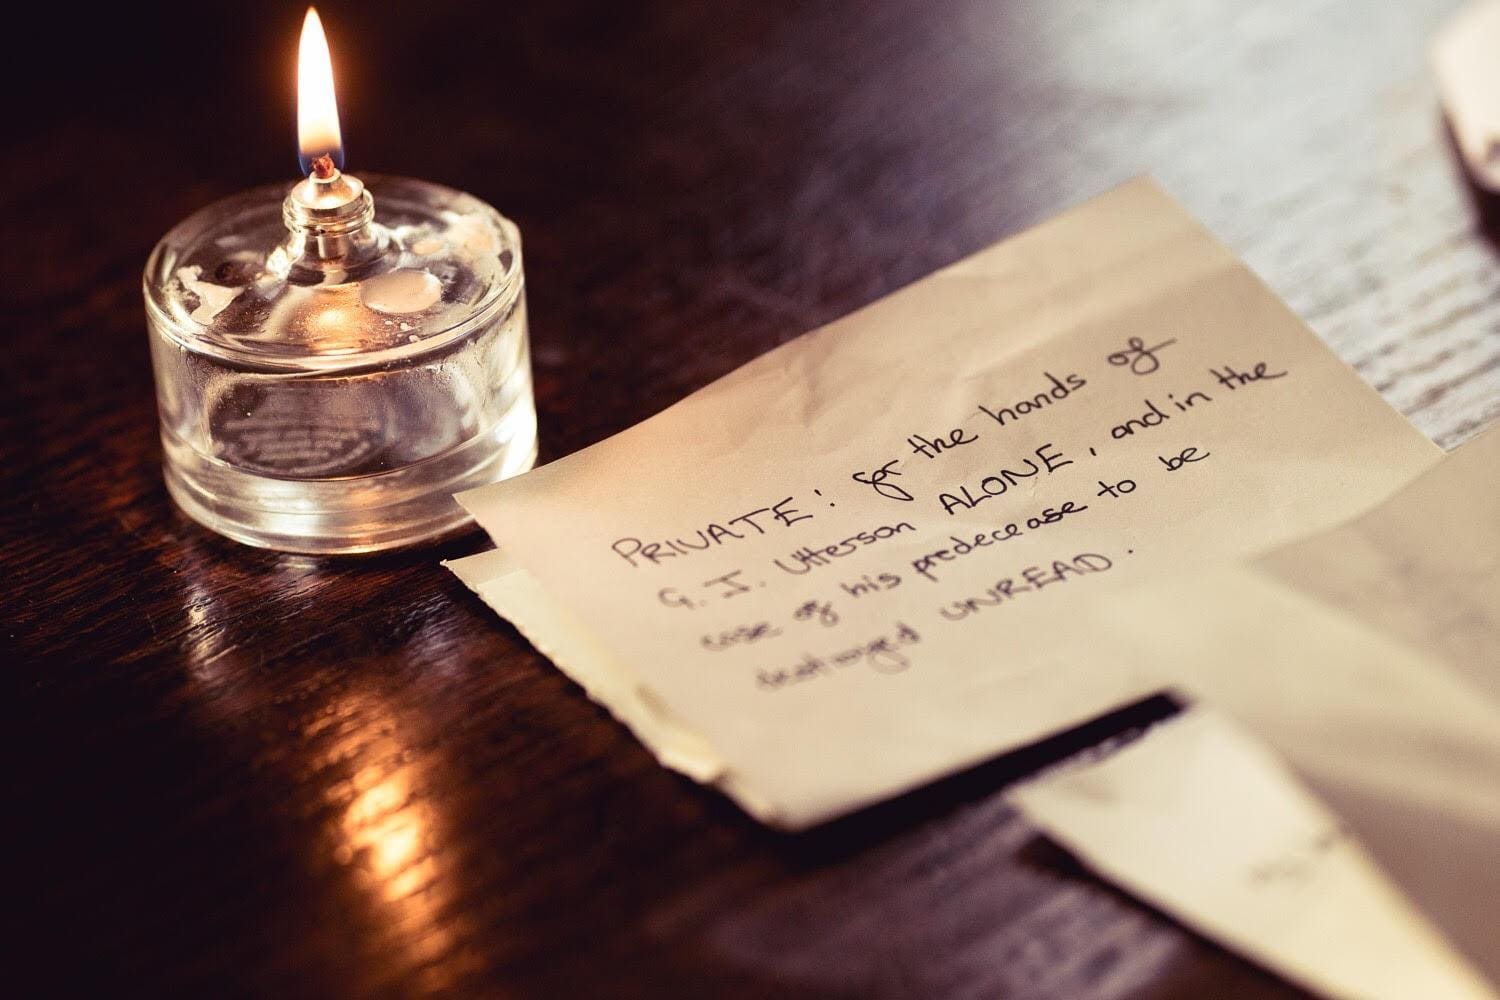 PRIVATE: for the hands of
G. J. Utterson ALONE, and in the
case of his predecease to be
destroyed UNREAD.